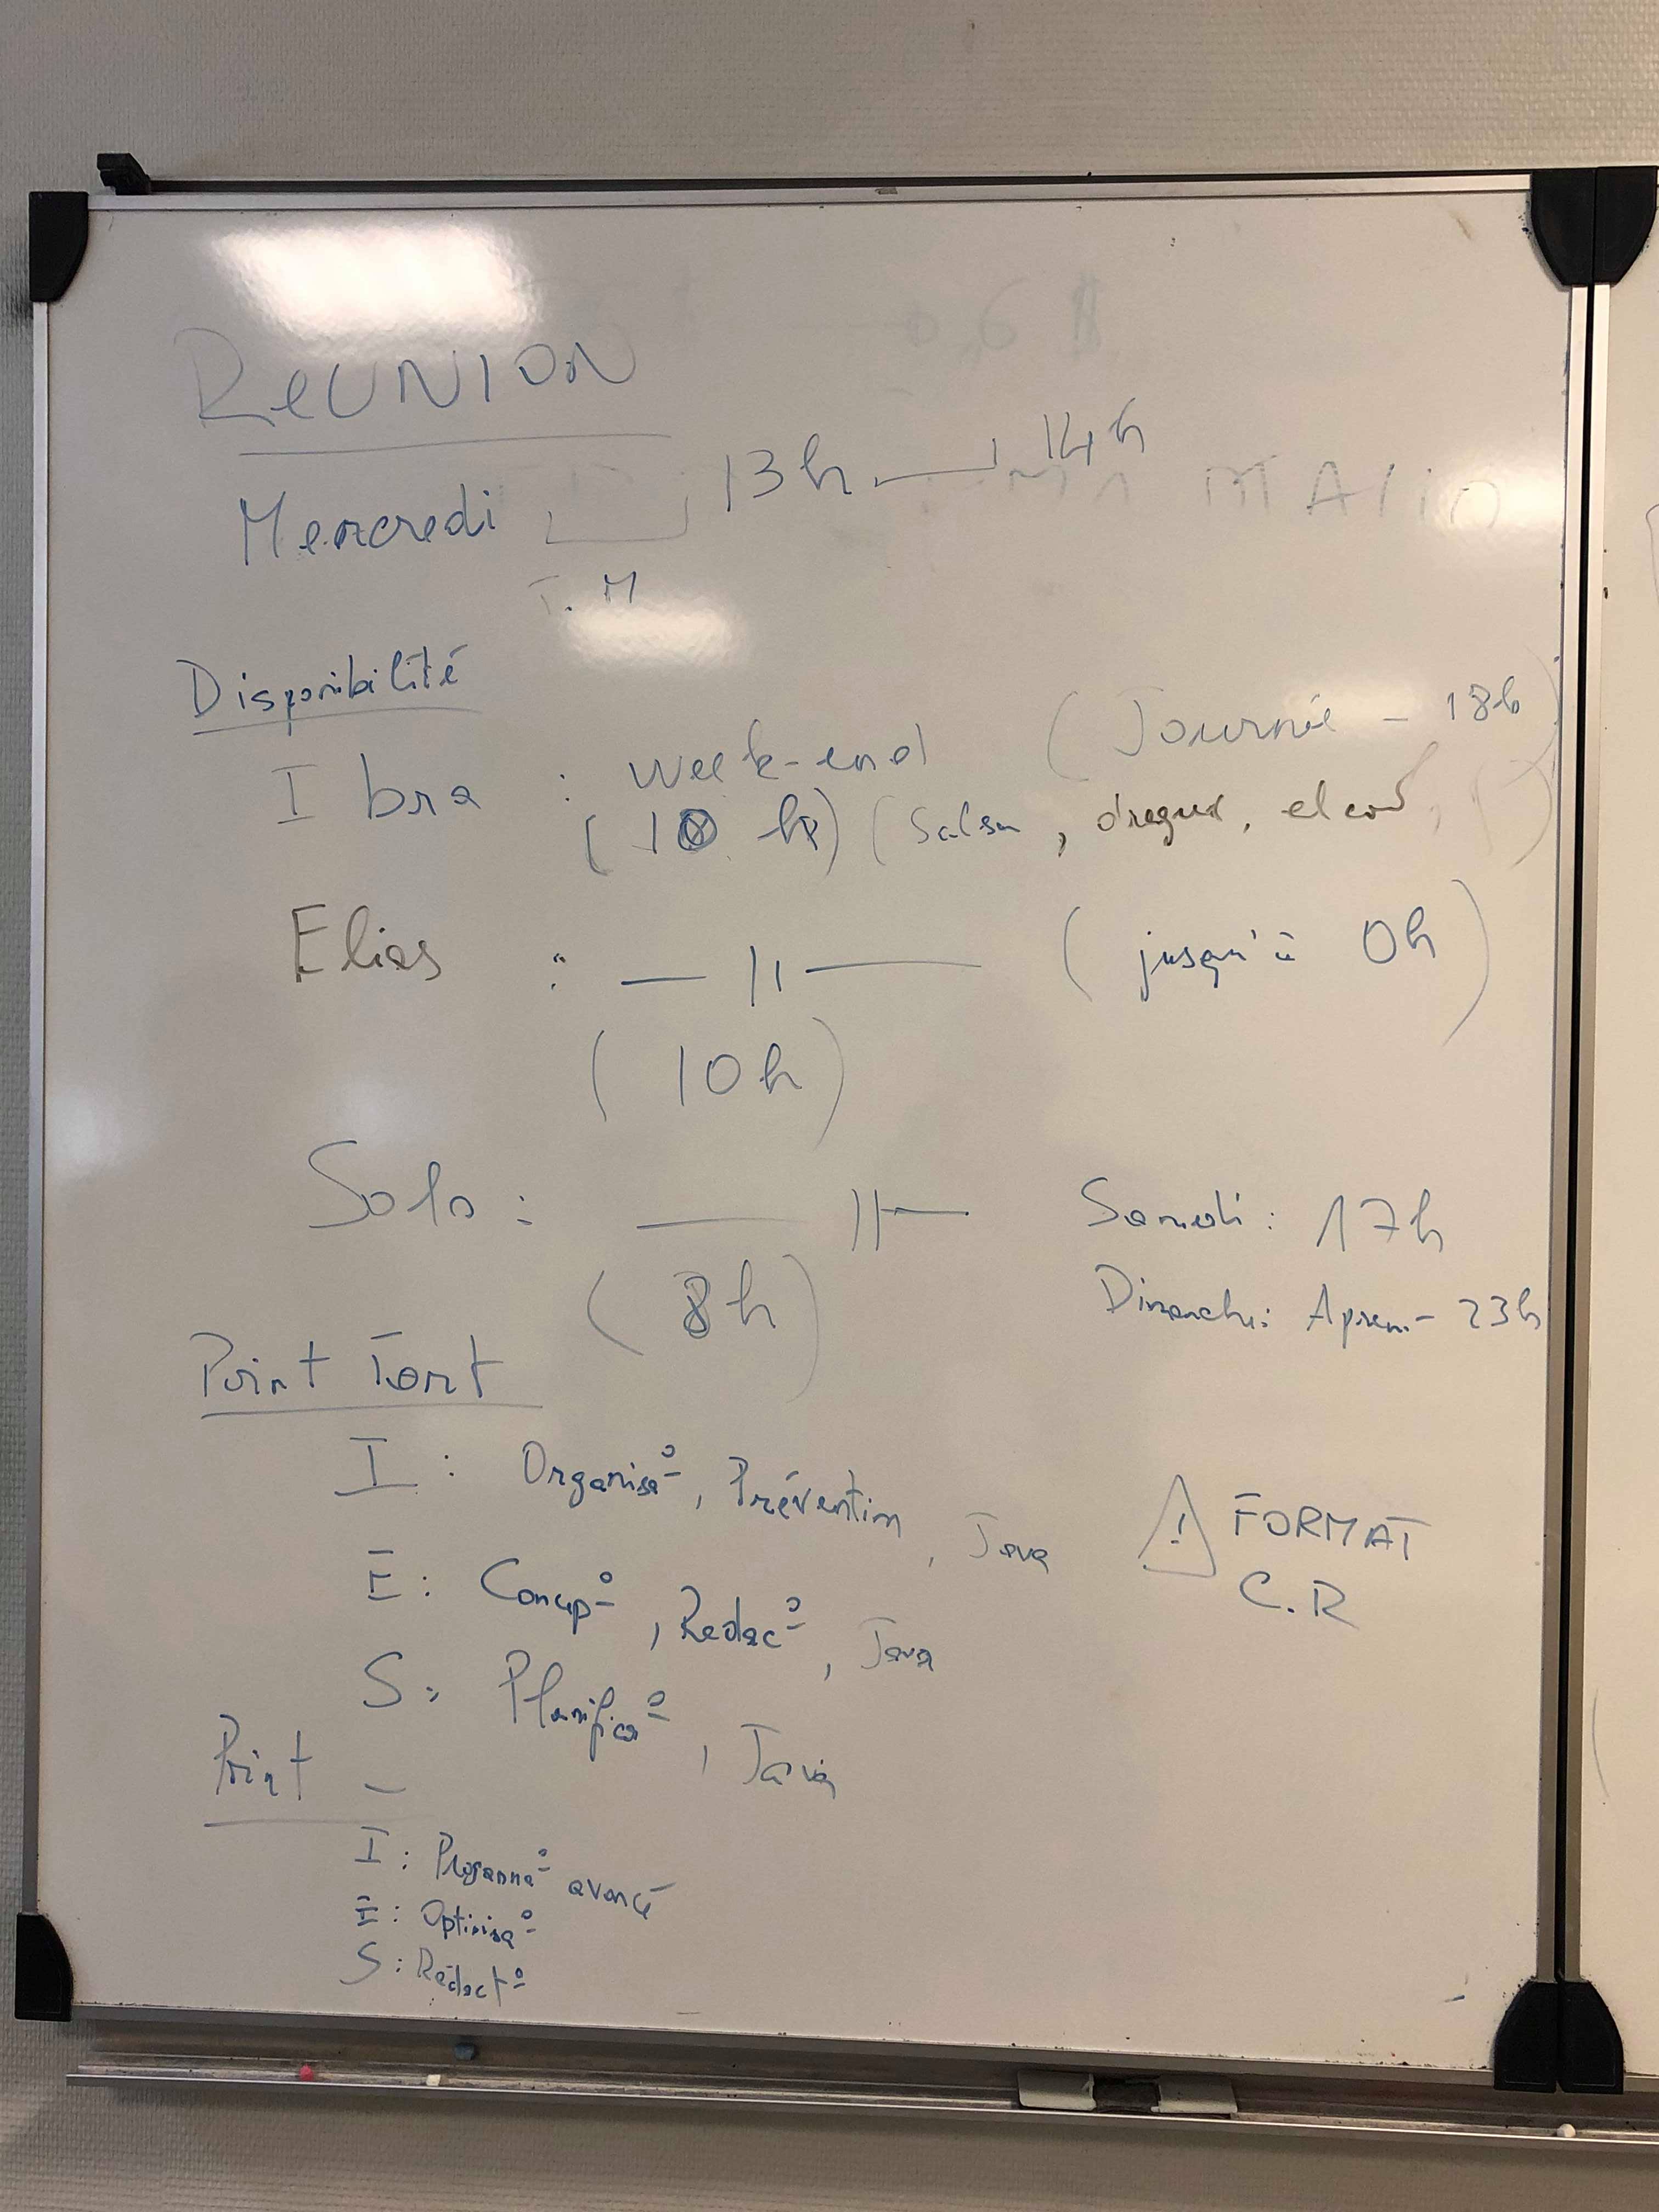 ReUNION
Mercredi 13h → 14h
T.M
Disponibilité
Ibra : week-end (Journée - 18h)
(10 h) (Salsa, draguer,
Elias : — // — (jusqu'à 0h)
(10h)
Solo : — // — Samedi : 17h
(8h) Dimanche : Aprem - 23h
Point Fort
I : Organisa°, Prévention, Java
⚠ FORMAT
E : Concep°, Rédac°, Java
C.R
S : Planifica°, Java
Point -
I : Programma° avancé
E : Optimisa°
S : Rédact°